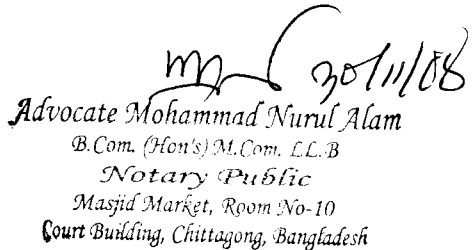 30/11/08
Advocate Mohammad Nurul Alam
B.Com. (Hon's) M.Com. LL.B
Notary Public
Masjid Market, Room No-10
Court Building, Chittagong, Bangladesh